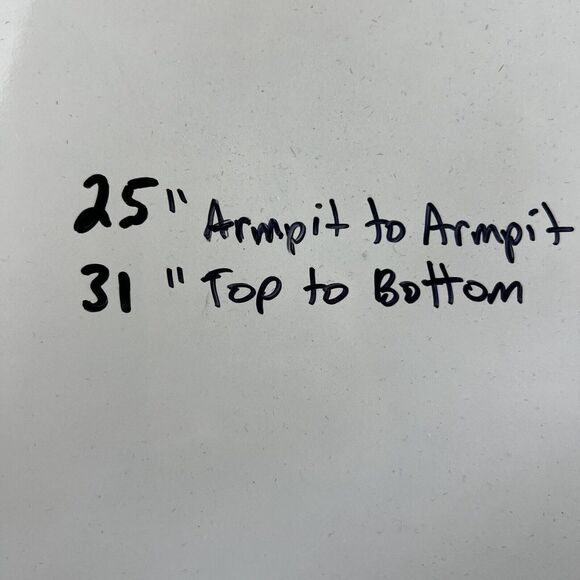 25" Armpit to Armpit
31" Top to Bottom